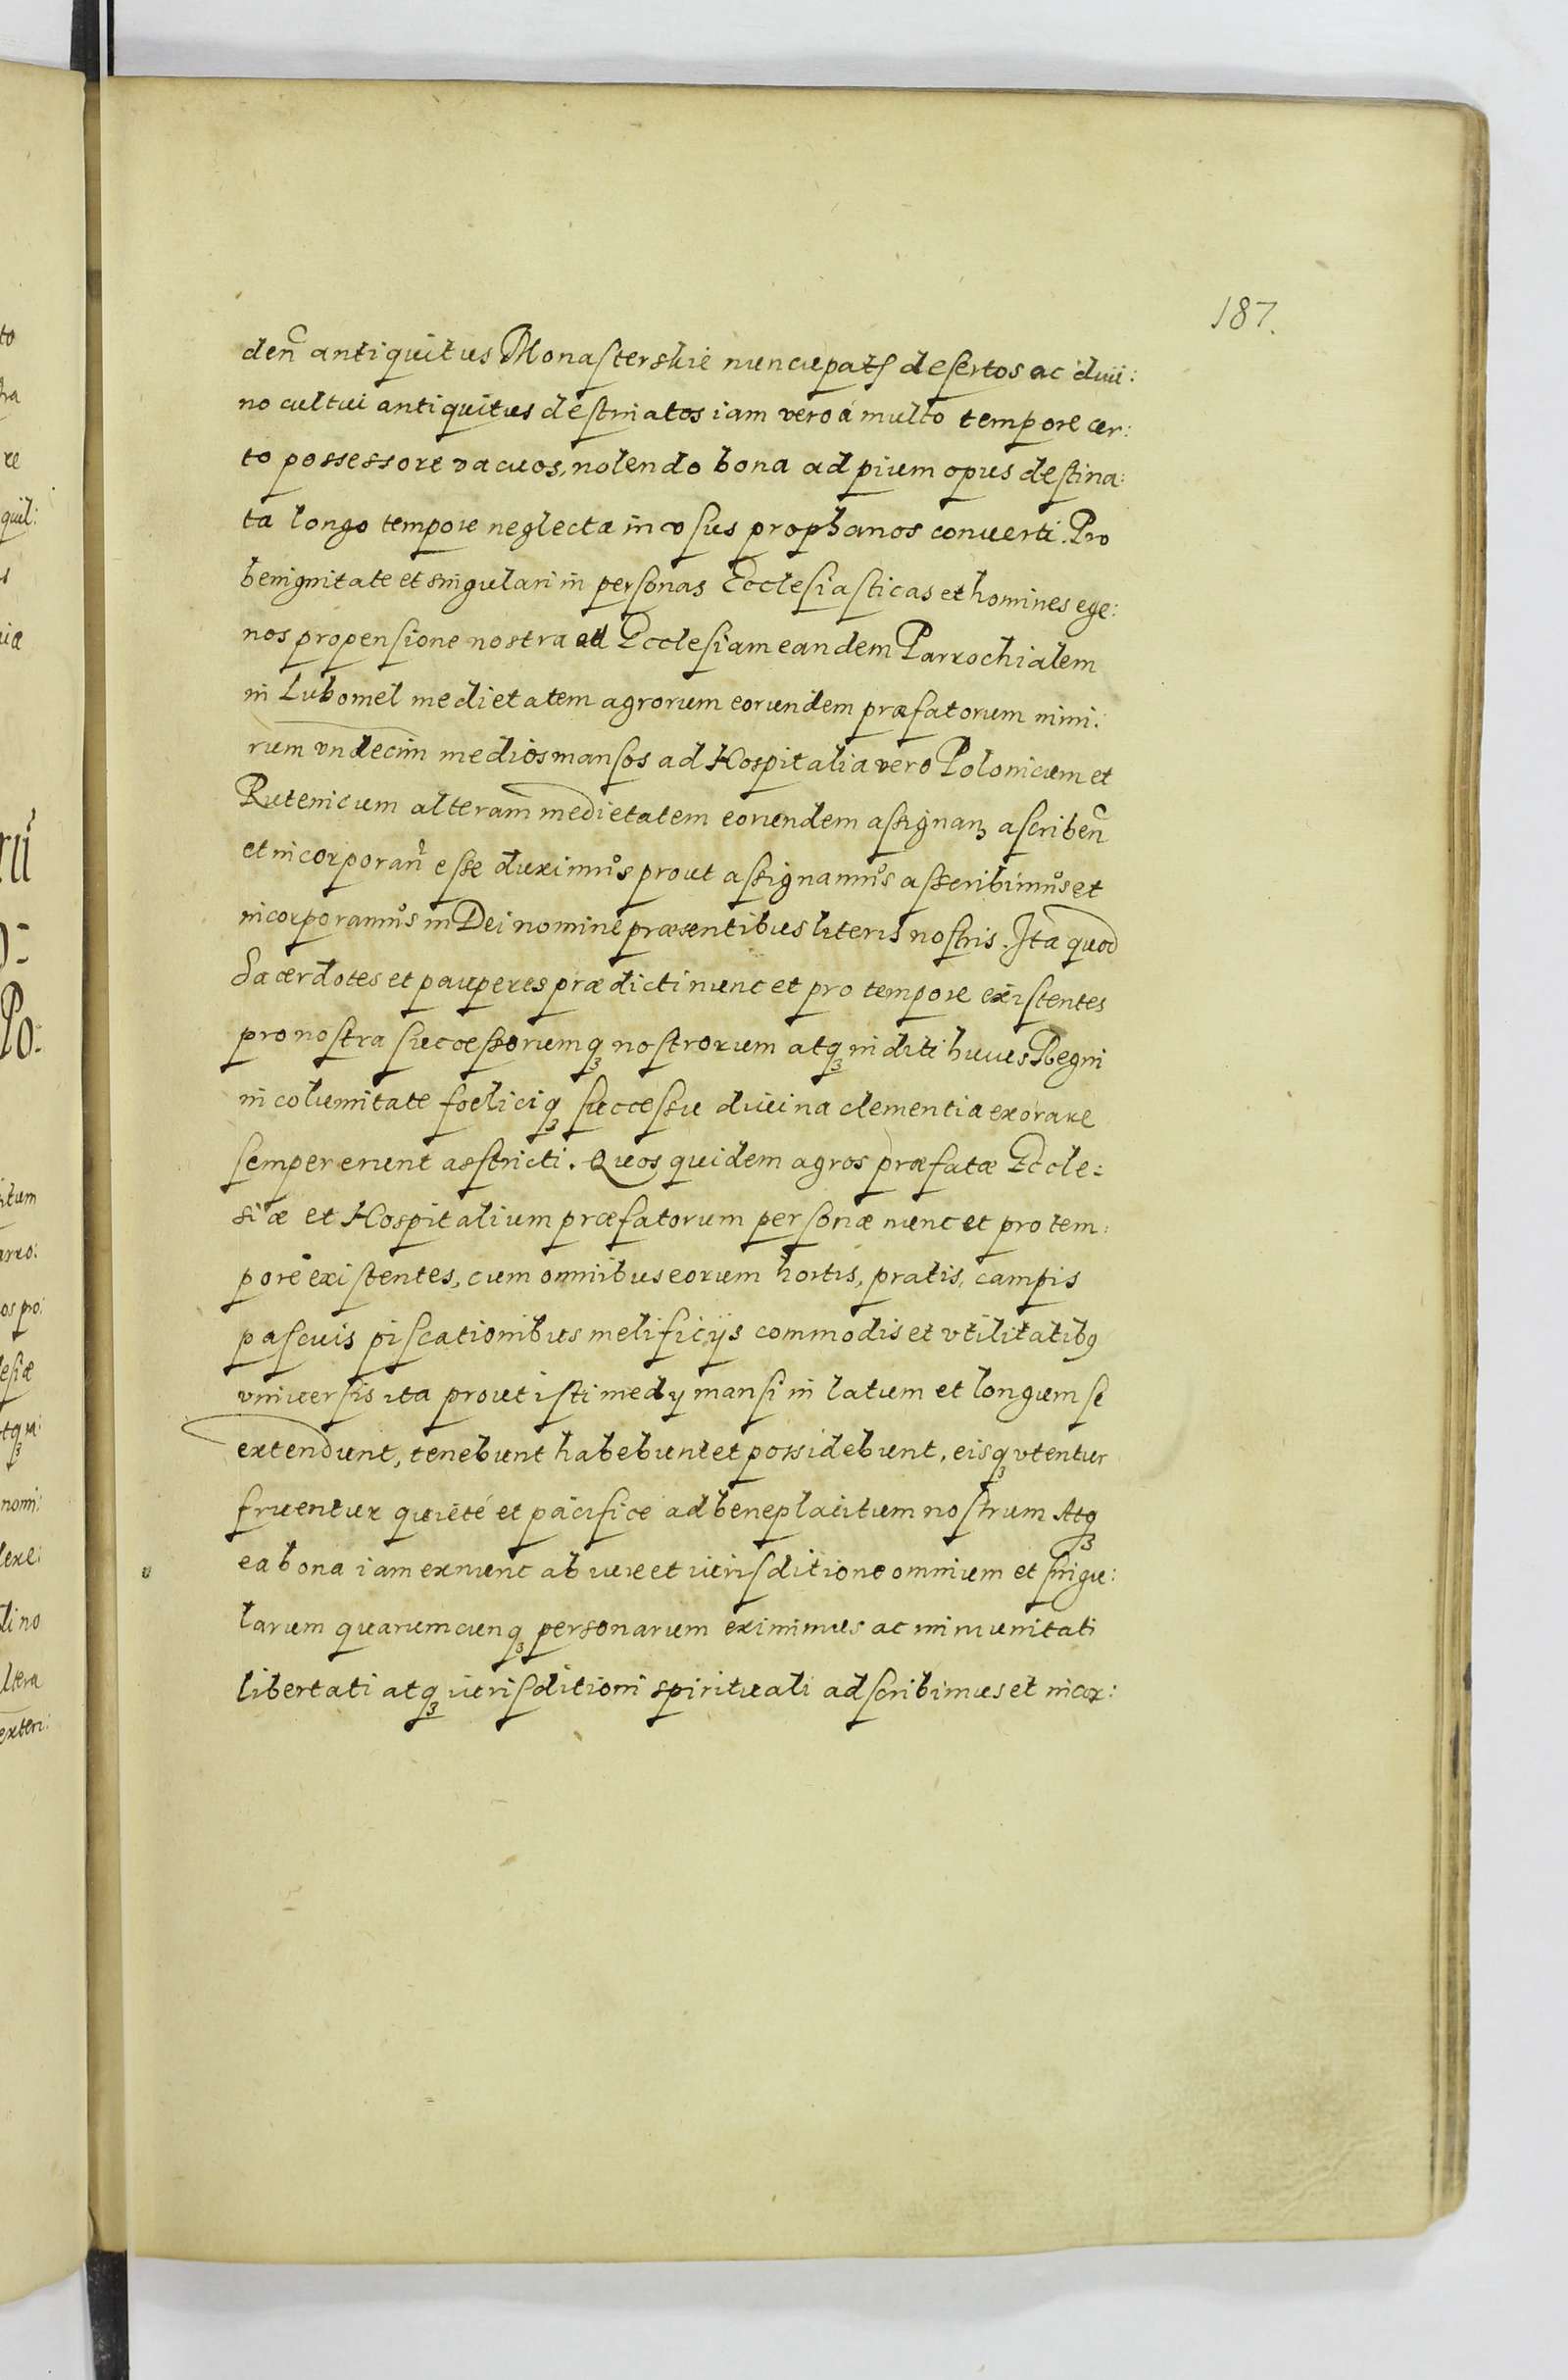 187.
den̄ antiquitus Monasterskie nuncupatꝭ desertos ac diui:
no cultui antiquitus destinatos iam vero á multo tempore cer:
to possessore vacuos, nolendo bona ad pium opus destina:
ta longo tempore neglecta in vsus prophanos conuerti. Pro
benignitate et singulari in personas Ecclesiasticas et homines ege:
nos propensione nostra ad Ecclesiam eandem Parrochialem
in Lubomel medietatem agrorum eorundem præfatorum nimi:
rum vndecim medios mansos ad Hospitalia vero Polonicum et
Rutenicum alteram medietatem eorundem assignanꝫ ascriben̄
et incorporan̄ esse duximus prout assignamus asscribimus et
incorporamus in Dei nomine præsentibus literis nostris. Ita quod
Sacerdotes et pauperes prædicti nunc et pro tempore existentes
pro nostra successorumqꝫ nostrorum atqꝫ incliti huius Regni
incolumitate foeliciqꝫ successu diuina clementia exorare
semper erunt asstricti. Quos quidem agros præfatæ Eccle:
siæ et Hospitalium præfatorum personæ nunc et pro tem:
pore existentes, cum omnibus eorum hortis, pratis, campis
pascuis piscationibus melificijs commodis et vtilitatibꝯ
vniuersis ita prout isti medij mansi in latum et longum se
extendunt, tenebunt habebunt et possidebunt, eisqꝫ vtentur
fruentur quieté et pacifice ad beneplacitum nostrum Atqꝫ
ea bona iam ex nunc ab iure et iurisditione omnium et singu:
larum quarumcunqꝫ personarum eximimus ac immunitati
libertati atqꝫ iurisditioni spirituali adscribimus et incor: